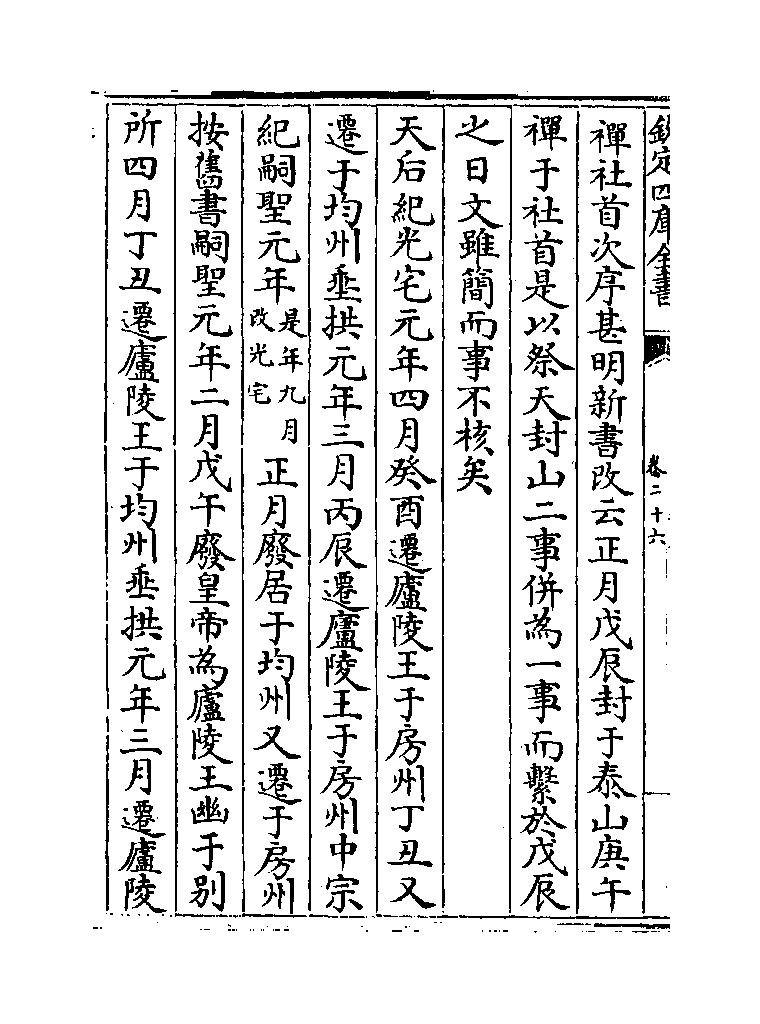 欽定四庫全書
卷二十六
禪社首次序甚明新書改云正月戊辰封于泰山庚午
禪于社首是以祭天封山二事併為一事而繫於戊辰
之日文雖簡而事不核矣
天后紀光宅元年四月癸酉遷廬陵王于房州丁丑又
遷于均州垂拱元年三月丙辰遷廬陵王于房州中宗
紀嗣聖元年是年九月改光宅正月廢居于均州又遷于房州
按舊書嗣聖元年二月戊午廢皇帝為廬陵王幽于別
所四月丁丑遷廬陵王于均州垂拱元年三月遷廬陵